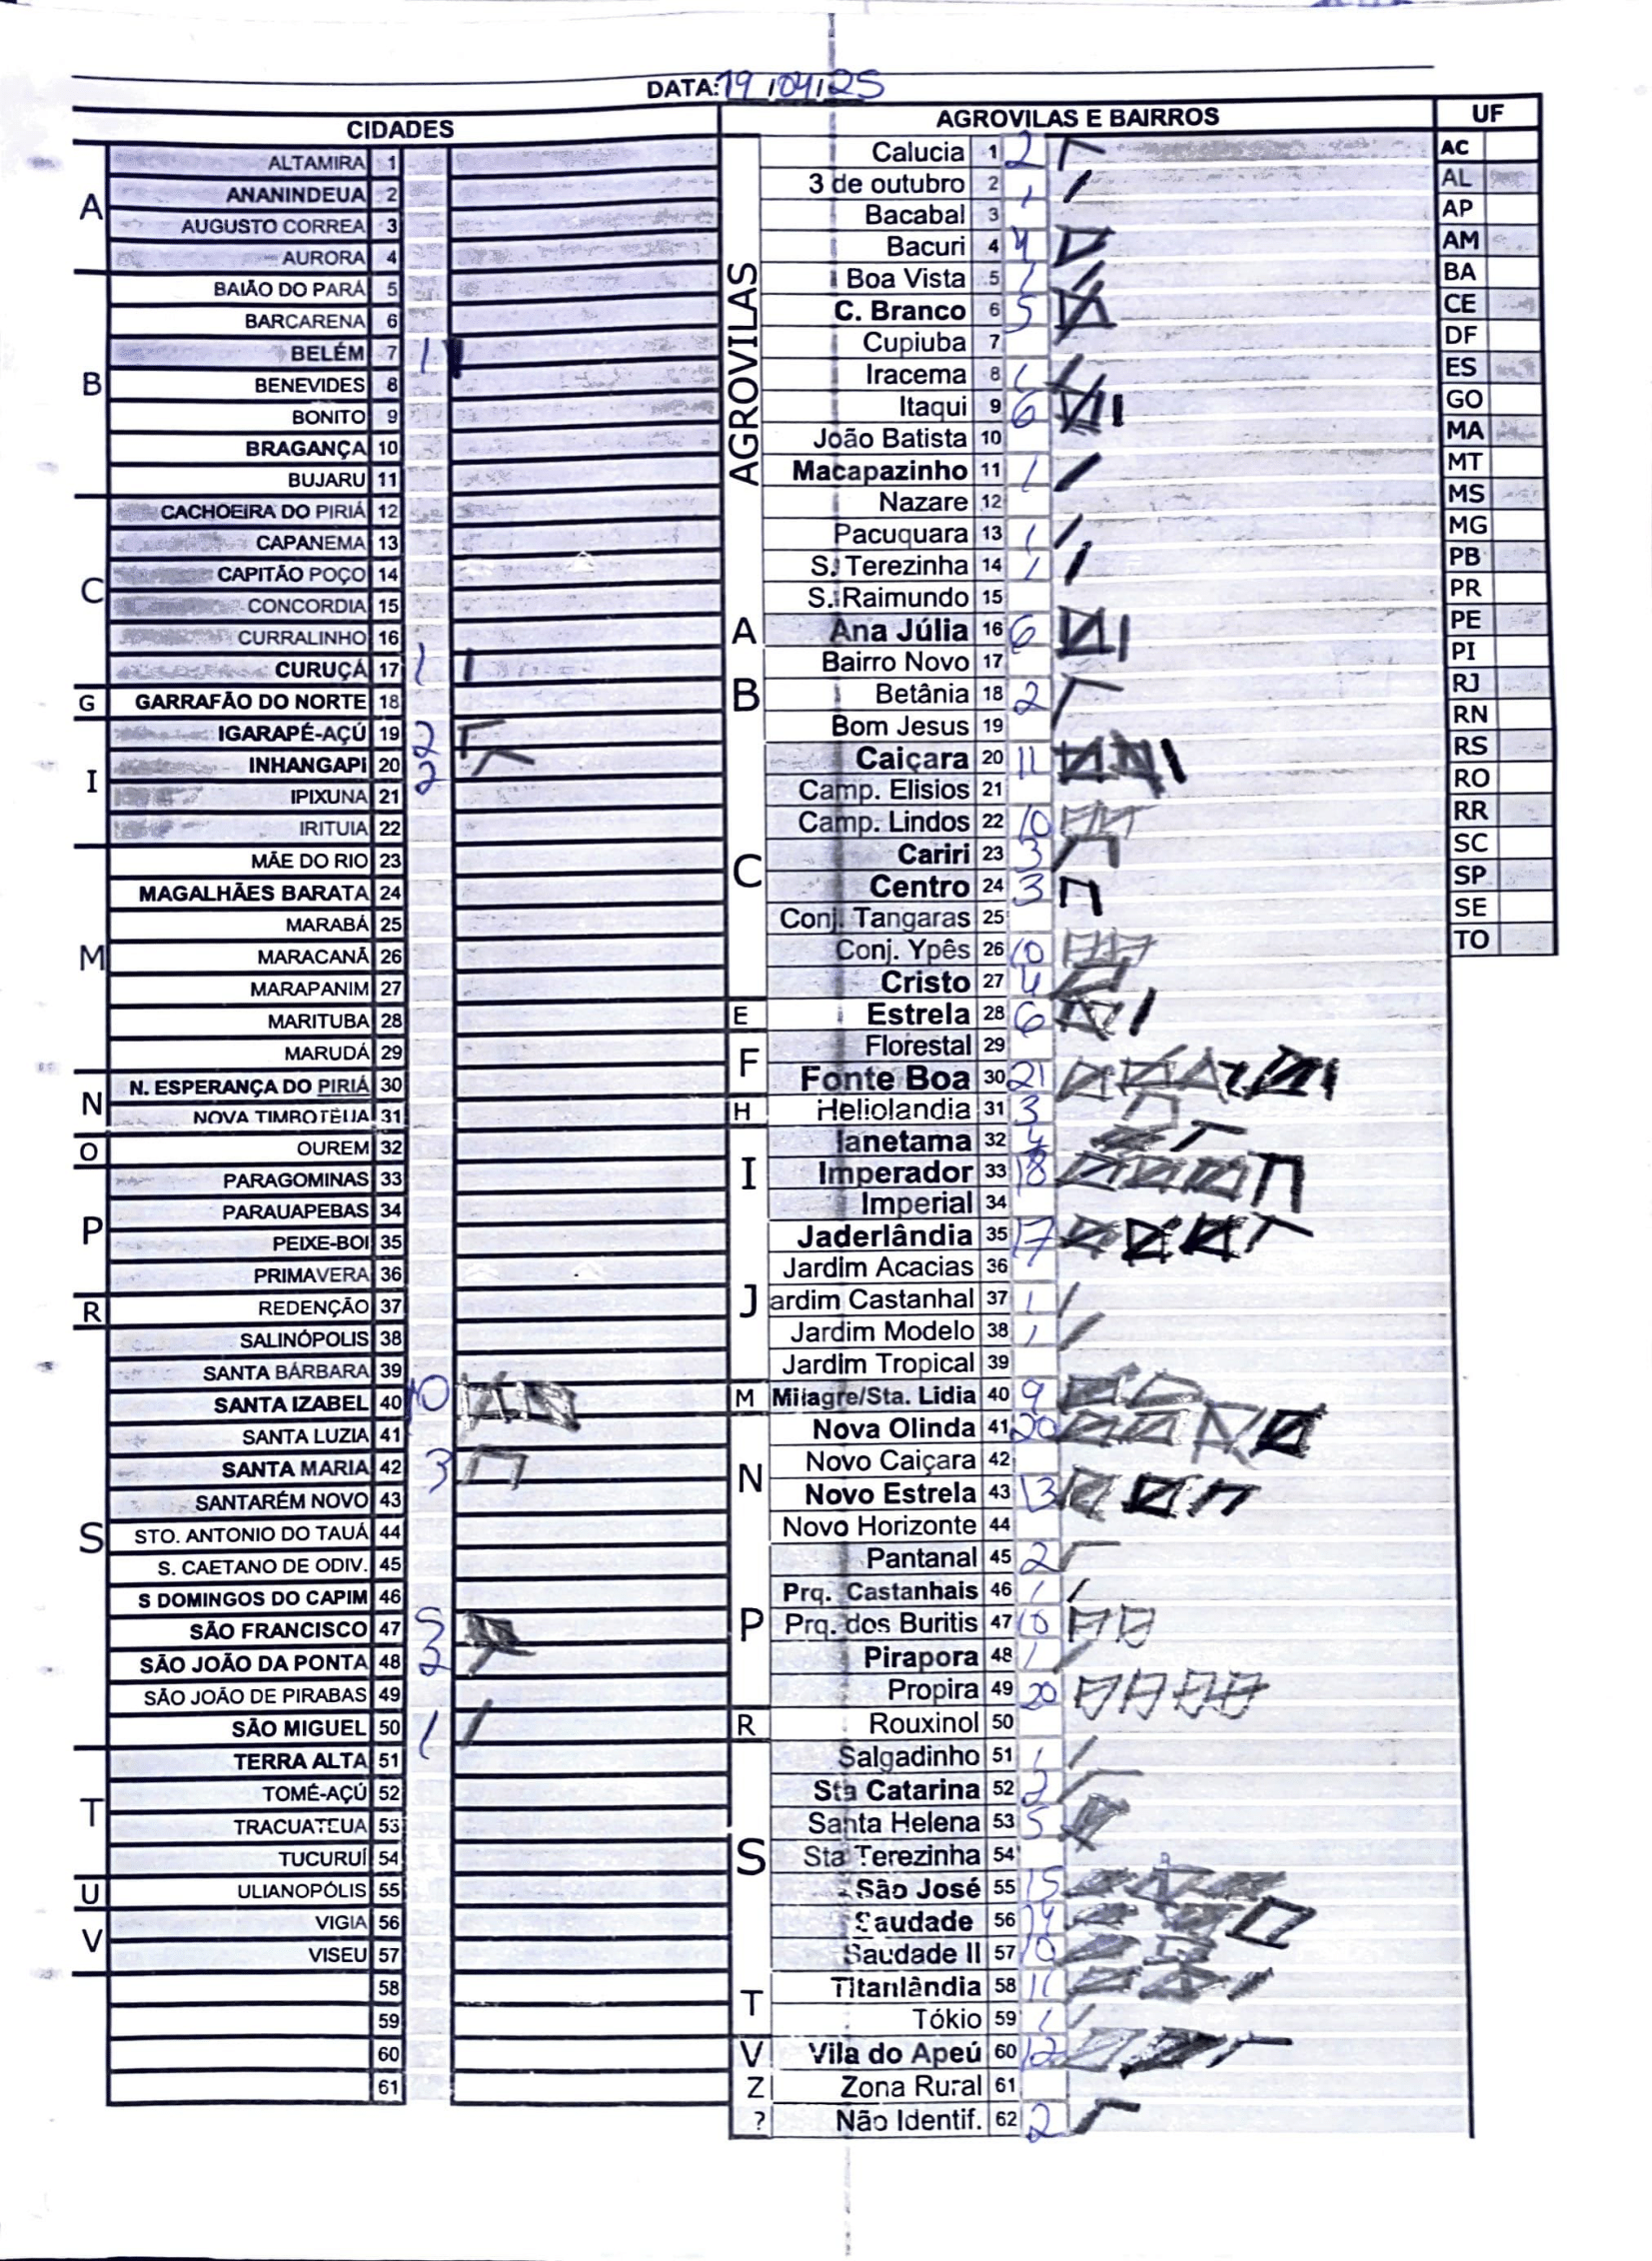 DATA: 19/04/25
CIDADES
A
ALTAMIRA 1
ANANINDEUA 2
AUGUSTO CORREA 3
AURORA 4
B
BAIÃO DO PARÁ 5
BARCARENA 6
BELÉM 7 1
BENEVIDES 8
BONITO 9
BRAGANÇA 10
BUJARU 11
C
CACHOEIRA DO PIRIÁ 12
CAPANEMA 13
CAPITÃO POÇO 14
CONCORDIA 15
CURRALINHO 16
CURUÇÁ 17 1
G
GARRAFÃO DO NORTE 18
I
IGARAPÉ-AÇÚ 19 2
INHANGAPI 20 2
IPIXUNA 21
IRITUIA 22
M
MÃE DO RIO 23
MAGALHÃES BARATA 24
MARABÁ 25
MARACANÃ 26
MARAPANIM 27
MARITUBA 28
MARUDÁ 29
N
N. ESPERANÇA DO PIRIÁ 30
NOVA TIMBOTEUA 31
O
OUREM 32
P
PARAGOMINAS 33
PARAUAPEBAS 34
PEIXE-BOI 35
PRIMAVERA 36
R
REDENÇÃO 37
S
SALINÓPOLIS 38
SANTA BÁRBARA 39
SANTA IZABEL 40 10
SANTA LUZIA 41
SANTA MARIA 42 3
SANTARÉM NOVO 43
STO. ANTONIO DO TAUÁ 44
S. CAETANO DE ODIV. 45
S DOMINGOS DO CAPIM 46
SÃO FRANCISCO 47 5
SÃO JOÃO DA PONTA 48 2
SÃO JOÃO DE PIRABAS 49
SÃO MIGUEL 50 1
T
TERRA ALTA 51
TOMÉ-AÇÚ 52
TRACUATEUA 53
TUCURUÍ 54
U
ULIANOPÓLIS 55
V
VIGIA 56
VISEU 57
58
59
60
61
AGROVILAS E BAIRROS
AGROVILAS
Calucia 1 2
3 de outubro 2 1
Bacabal 3
Bacuri 4 4
Boa Vista 5 1
C. Branco 6 5
Cupiuba 7
Iracema 8 1
Itaqui 9 6
João Batista 10
Macapazinho 11 1
Nazare 12
Pacuquara 13 1
S. Terezinha 14 1
S. Raimundo 15
A
Ana Júlia 16 6
B
Bairro Novo 17
Betânia 18 2
Bom Jesus 19
C
Caiçara 20 11
Camp. Elisios 21
Camp. Lindos 22 10
Cariri 23 3
Centro 24 3
Conj. Tangaras 25
Conj. Ypês 26 10
Cristo 27 4
E
Estrela 28 6
F
Florestal 29
Fonte Boa 30 21
H
Heliolandia 31 3
I
Ianetama 32
Imperador 33 18
Imperial 34
J
Jaderlândia 35 17
Jardim Acacias 36
ardim Castanhal 37 1
Jardim Modelo 38 1
Jardim Tropical 39
M
Milagre/Sta. Lidia 40 9
N
Nova Olinda 41 20
Novo Caiçara 42
Novo Estrela 43 13
Novo Horizonte 44
P
Pantanal 45 2
Prq. Castanhais 46 1
Prq. dos Buritis 47 10
Pirapora 48 1
Propira 49 20
R
Rouxinol 50
S
Salgadinho 51 1
Sta Catarina 52 2
Santa Helena 53 5
Sta Terezinha 54
São José 55 15
Saudade 56
Saudade II 57 10
T
Titanlândia 58 11
Tókio 59 1
V
Vila do Apeú 60 12
Z
Zona Rural 61
?
Não Identif. 62 2
UF
AC
AL
AP
AM
BA
CE
DF
ES
GO
MA
MT
MS
MG
PB
PR
PE
PI
RJ
RN
RS
RO
RR
SC
SP
SE
TO